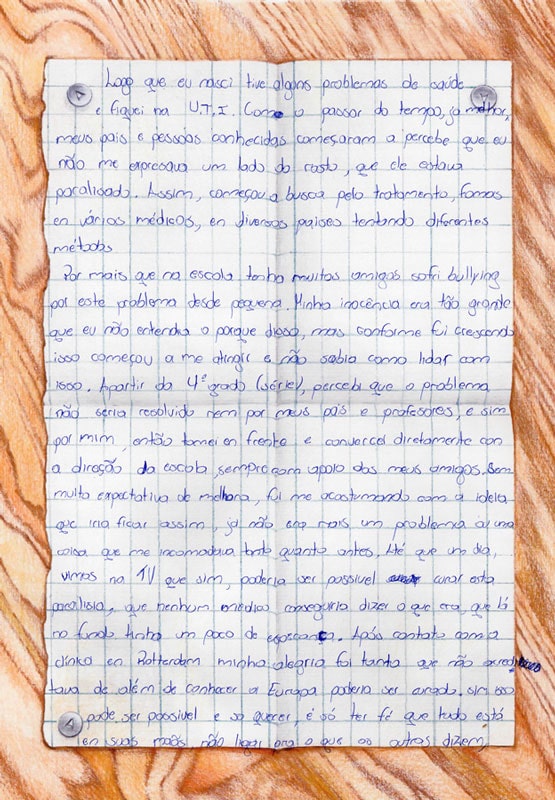 Logo que eu nasci tive alguns problemas de saúde
e fiquei na U.T.I. Com o passar do tempo, já melhor,
meus pais e pessoas conhecidas começaram a percebe que eu
não me expresava um lado do rosto, que ele estava
paralisado. Assim, começou a busca pelo tratamento, fomos
en vários médicos, en diversos paises tentando diferentes
métodos
Por mais que na escola tenha muitos amigos sofri bullying
por este problema desde pequena. Minha inocência era tão grande
que eu não entendia o porque disso, mas conforme fui crescendo
isso começou a me atingir e não sabia como lidar com
isso. Apartir da 4ª grado (série), percebi que o problema
não seria resolvido nem por meus pais e professores, e sim
por mim, então tomei en frente e conversei diretamente con
a direção da escola, sempre com apoio dos meus amigos. Sem
muita expectativa de melhora, fui me acostumando com a ideia
que iria ficar assim, já não era mais um problema ou uma
coisa que me incomodava tanto quanto antes. Até que um dia,
vimos na TV que sim, poderia ser possivel curar esta
paralisia, que nenhum médico conseguiria dizer o que era, que lá
no fundo tinha um poco de esperança. Após contato com a
clínica en Rotterdam minha alegria foi tanta que não acredi
tava de além de conhecer a Europa poderia ser curada. sim isso
pode ser possivel e so querer, é só ter fé que tudo está
en suas mãos não ligar pra o que os outros dizem,